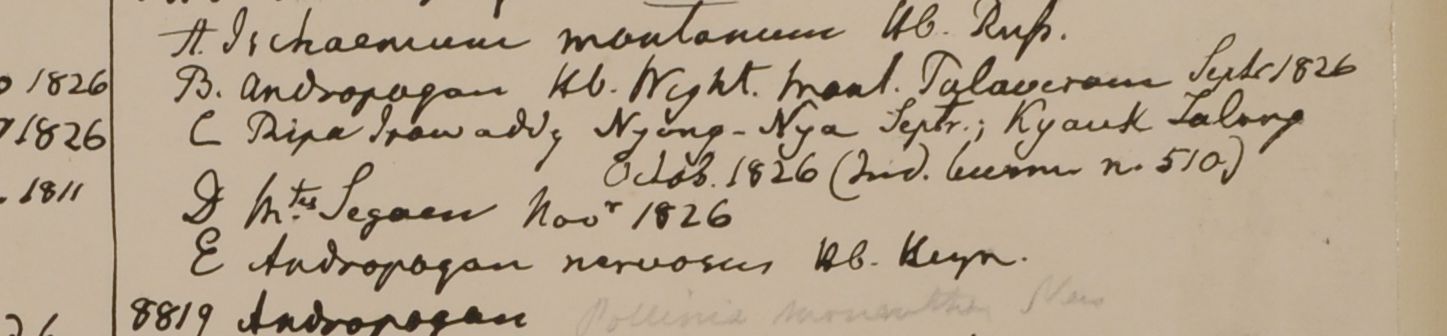 A. Ischaemum montanum Hb. Russ.
0 1826 B. Andropogon Hb. Wight. mont. Talaveram Septr 1826
1826 C Ripa Irawaddy Nyong-Nya Septr.; Kyauk Talong
Octob. 1826 (Ind. burm n. 510)
. 1811 D Mtes Segaen Novr 1826
E Andropogon nervosus Hb. Heyn.
8819 Andropogon Pollinia